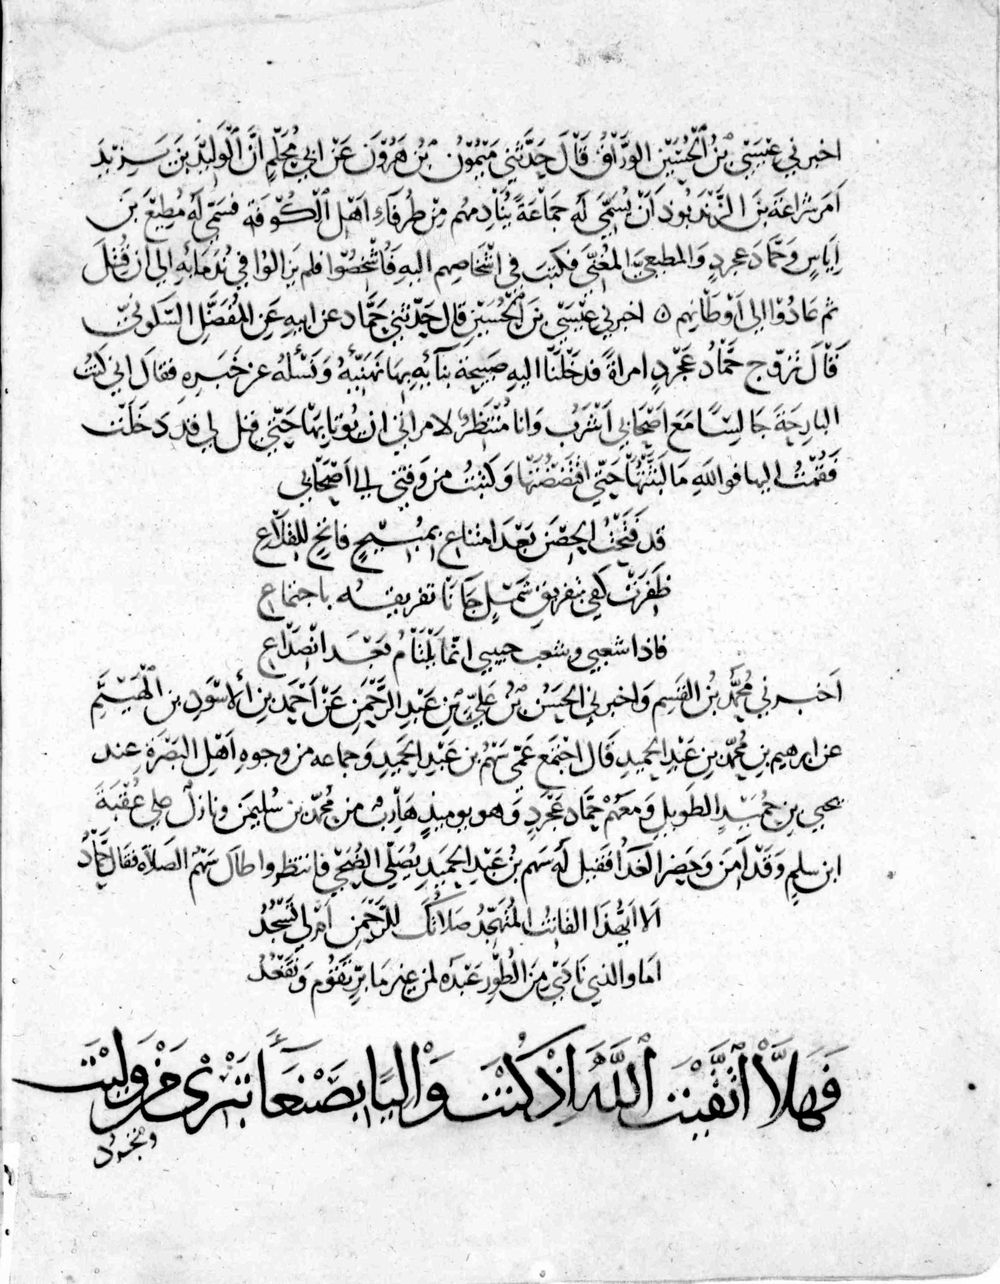 اخبرني عيسى بن الحسين الوراق قال حدثني ميمون بن هرون عن ابي محلم ان الوليد بن يزيد
امر شراعة بن الزندبود ان يسمي له جماعة ينادمهم من ظرفاء اهل الكوفة فسمى له مطيع بن
اياس وحماد عجرد والمطيعي المغني فكتب في اشخاصهم اليه فاشخصوا فلم يزالوا في ندمائه الى ان قتل
ثم عادوا الى اوطانهم ه اخبرني عيسى بن الحسين قال حدثني حماد عن ابيه عن المفضل السكوني
قال تزوج حماد عجرد امراة فدخلنا اليه صبيحة بنائه بها نهنئه ونسله عن خبره فقال اني كنت
البارحة جالسا مع اصحابي اشرب وانا منتظر لامراتي ان يوتا بها حتى قيل لي قد دخلت
فقمت اليها فوالله ما لبثتها حتى افتضضتها وكتبت من وقتي الى اصحابي
قد فتحت الحصن بعد امتناع بمبيح فاتح للقلاع
ظفرت كفي بتفريق شمل جانا تفريقه باجتماع
فاذا شعبي وشعب حبيبي انما يلتام بعد انصداع
اخبرني محمد بن القسم واخبرني الحسن بن علي بن عبد الرحمن عن احمد بن الاسود بن الهيثم
عن ابرهيم بن محمد بن عبد الحميد قال اجتمع عمي سهم بن عبد الحميد وجماعه من وجوه اهل البصرة عند
يحيى بن حميد الطويل ومعهم حماد عجرد وهو يوميذ هارب من محمد بن سليمن ونازل على عقبة
ابن سلم وقد امن وحضر الغدا فقيل له سهم بن عبد الحميد يصلي الضحى فانتظروا طال سهم الصلاة فقال حماد
الا ايهذا القانت المتهجد صلاتك للرحمن ام لي تسجد
اما والذي نادى من الطور عبده لمن غير ما بر تقوم وتقعد
فهلا اتقيت الله اذ كنت واليا بصنعا تبري من وليت
وتجرد